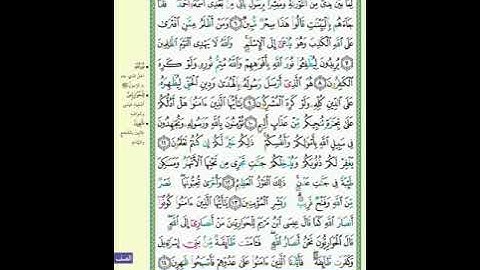 لِّمَا بَيْنَ يَدَيَّ مِنَ ٱلتَّوْرَىٰةِ وَمُبَشِّرًۢا بِرَسُولٍ يَأْتِى مِنۢ بَعْدِى ٱسْمُهُۥٓ أَحْمَدُ ۖ فَلَمَّا
جَآءَهُم بِٱلْبَيِّنَٰتِ قَالُوا۟ هَٰذَا سِحْرٌ مُّبِينٌ ٦ وَمَنْ أَظْلَمُ مِمَّنِ ٱفْتَرَىٰ
عَلَى ٱللَّهِ ٱلْكَذِبَ وَهُوَ يُدْعَىٰٓ إِلَى ٱلْإِسْلَٰمِ ۚ وَٱللَّهُ لَا يَهْدِى ٱلْقَوْمَ ٱلظَّٰلِمِينَ
٧ يُرِيدُونَ لِيُطْفِـُٔوا۟ نُورَ ٱللَّهِ بِأَفْوَٰهِهِمْ وَٱللَّهُ مُتِمُّ نُورِهِۦ وَلَوْ كَرِهَ
ٱلْكَٰفِرُونَ ٨ هُوَ ٱلَّذِىٓ أَرْسَلَ رَسُولَهُۥ بِٱلْهُدَىٰ وَدِينِ ٱلْحَقِّ لِيُظْهِرَهُۥ
عَلَى ٱلدِّينِ كُلِّهِۦ وَلَوْ كَرِهَ ٱلْمُشْرِكُونَ ٩ يَٰٓأَيُّهَا ٱلَّذِينَ ءَامَنُوا۟ هَلْ أَدُلُّكُمْ
عَلَىٰ تِجَٰرَةٍ تُنجِيكُم مِّنْ عَذَابٍ أَلِيمٍ ١٠ تُؤْمِنُونَ بِٱللَّهِ وَرَسُولِهِۦ وَتُجَٰهِدُونَ
فِى سَبِيلِ ٱللَّهِ بِأَمْوَٰلِكُمْ وَأَنفُسِكُمْ ۚ ذَٰلِكُمْ خَيْرٌ لَّكُمْ إِن كُنتُمْ تَعْلَمُونَ ١١
يَغْفِرْ لَكُمْ ذُنُوبَكُمْ وَيُدْخِلْكُمْ جَنَّٰتٍ تَجْرِى مِن تَحْتِهَا ٱلْأَنْهَٰرُ وَمَسَٰكِنَ
طَيِّبَةً فِى جَنَّٰتِ عَدْنٍ ۚ ذَٰلِكَ ٱلْفَوْزُ ٱلْعَظِيمُ ١٢ وَأُخْرَىٰ تُحِبُّونَهَا ۖ نَصْرٌ
مِّنَ ٱللَّهِ وَفَتْحٌ قَرِيبٌ ۗ وَبَشِّرِ ٱلْمُؤْمِنِينَ ١٣ يَٰٓأَيُّهَا ٱلَّذِينَ ءَامَنُوا۟ كُونُوٓا۟
أَنصَارَ ٱللَّهِ كَمَا قَالَ عِيسَى ٱبْنُ مَرْيَمَ لِلْحَوَارِيِّـۧنَ مَنْ أَنصَارِىٓ إِلَى ٱللَّهِ ۖ
قَالَ ٱلْحَوَارِيُّونَ نَحْنُ أَنصَارُ ٱللَّهِ ۖ فَـَٔامَنَت طَّآئِفَةٌ مِّنۢ بَنِىٓ إِسْرَٰٓءِيلَ
وَكَفَرَت طَّآئِفَةٌ ۖ فَأَيَّدْنَا ٱلَّذِينَ ءَامَنُوا۟ عَلَىٰ عَدُوِّهِمْ فَأَصْبَحُوا۟ ظَٰهِرِينَ ١٤
الصف